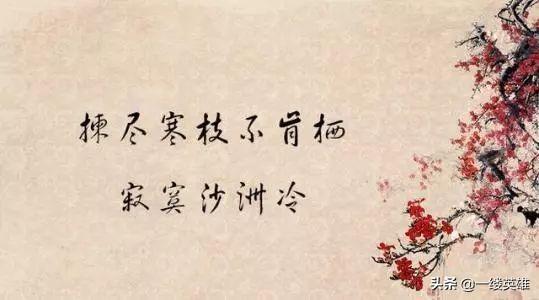 揀尽寒枝不肯栖
寂寞沙洲冷
头条 @一线英雄